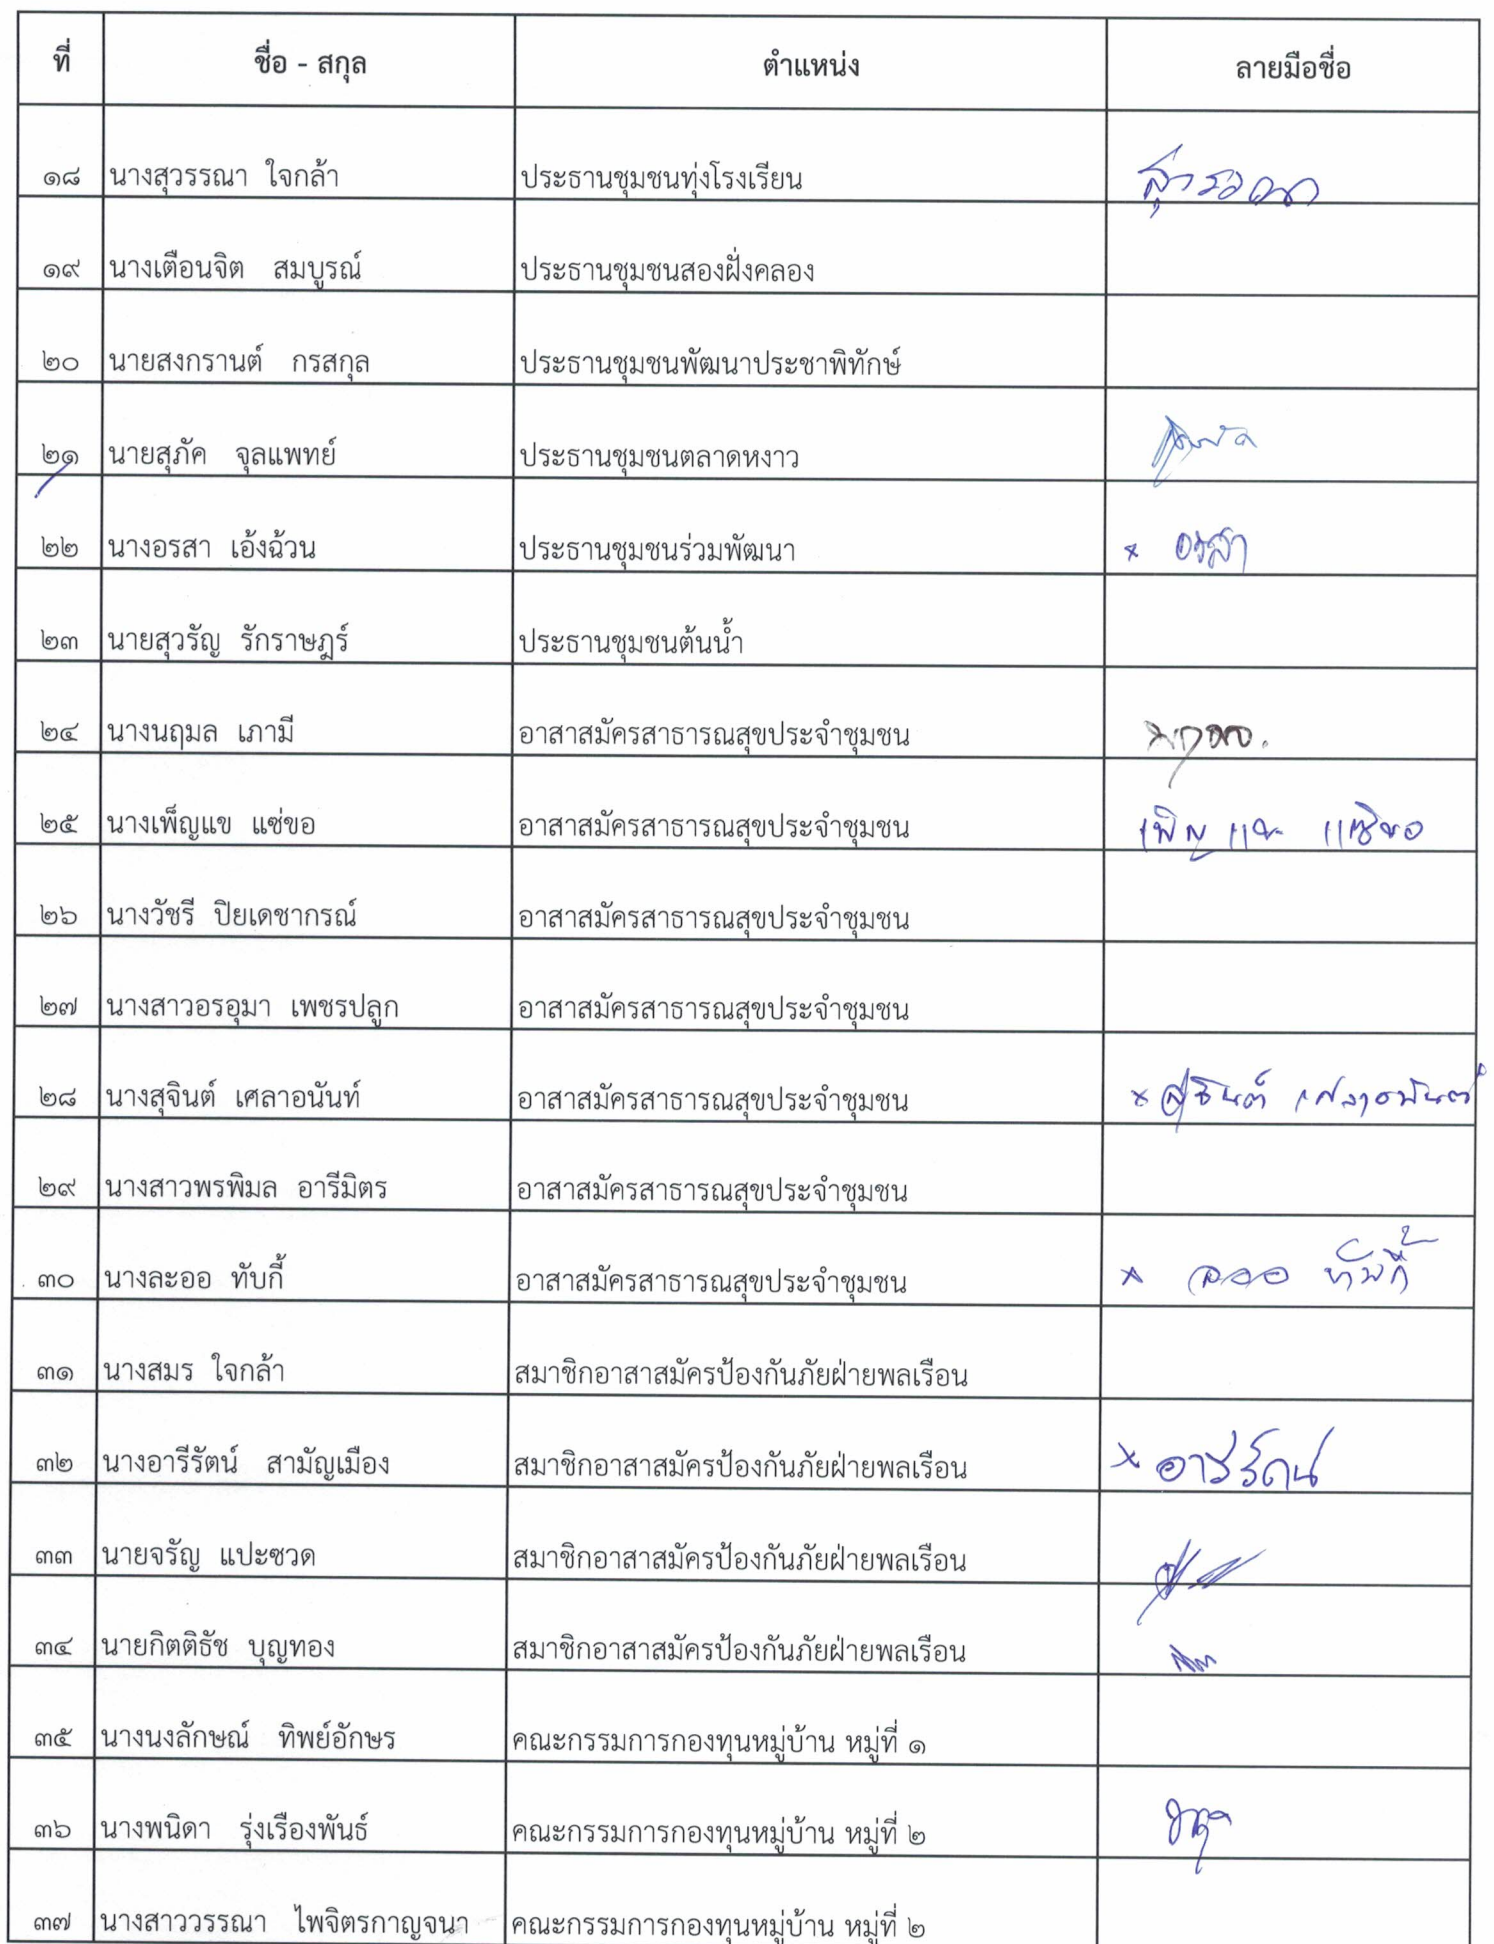 ที่ ชื่อ - สกุล ตำแหน่ง ลายมือชื่อ
๑๘ นางสุวรรณา ใจกล้า ประธานชุมชนทุ่งโรงเรียน สุวรรณา
๑๙ นางเตือนจิต สมบูรณ์ ประธานชุมชนสองฝั่งคลอง
๒๐ นายสงกรานต์ กรสกุล ประธานชุมชนพัฒนาประชาพิทักษ์
๒๑ นายสุภัค จุลแพทย์ ประธานชุมชนตลาดหงาว
๒๒ นางอรสา เอ้งฉ้วน ประธานชุมชนร่วมพัฒนา × อรสา
๒๓ นายสุวรัญ รักราษฎร์ ประธานชุมชนต้นน้ำ
๒๔ นางนฤมล เภามี อาสาสมัครสาธารณสุขประจำชุมชน นฤมล.
๒๕ นางเพ็ญแข แซ่ขอ อาสาสมัครสาธารณสุขประจำชุมชน เพ็ญแข แซ่ขอ
๒๖ นางวัชรี ปิยเดชากรณ์ อาสาสมัครสาธารณสุขประจำชุมชน
๒๗ นางสาวอรอุมา เพชรปลูก อาสาสมัครสาธารณสุขประจำชุมชน
๒๘ นางสุจินต์ เศลาอนันท์ อาสาสมัครสาธารณสุขประจำชุมชน × สุจินต์
๒๙ นางสาวพรพิมล อารีมิตร อาสาสมัครสาธารณสุขประจำชุมชน
๓๐ นางละออ ทับกี้ อาสาสมัครสาธารณสุขประจำชุมชน × ลออ ทับกี้
๓๑ นางสมร ใจกล้า สมาชิกอาสาสมัครป้องกันภัยฝ่ายพลเรือน
๓๒ นางอารีรัตน์ สามัญเมือง สมาชิกอาสาสมัครป้องกันภัยฝ่ายพลเรือน × อารีรัตน์
๓๓ นายจรัญ แปะซวด สมาชิกอาสาสมัครป้องกันภัยฝ่ายพลเรือน
๓๔ นายกิตติธัช บุญทอง สมาชิกอาสาสมัครป้องกันภัยฝ่ายพลเรือน
๓๕ นางนงลักษณ์ ทิพย์อักษร คณะกรรมการกองทุนหมู่บ้าน หมู่ที่ ๑
๓๖ นางพนิดา รุ่งเรืองพันธ์ คณะกรรมการกองทุนหมู่บ้าน หมู่ที่ ๒
๓๗ นางสาววรรณา ไพจิตรกาญจนา คณะกรรมการกองทุนหมู่บ้าน หมู่ที่ ๒